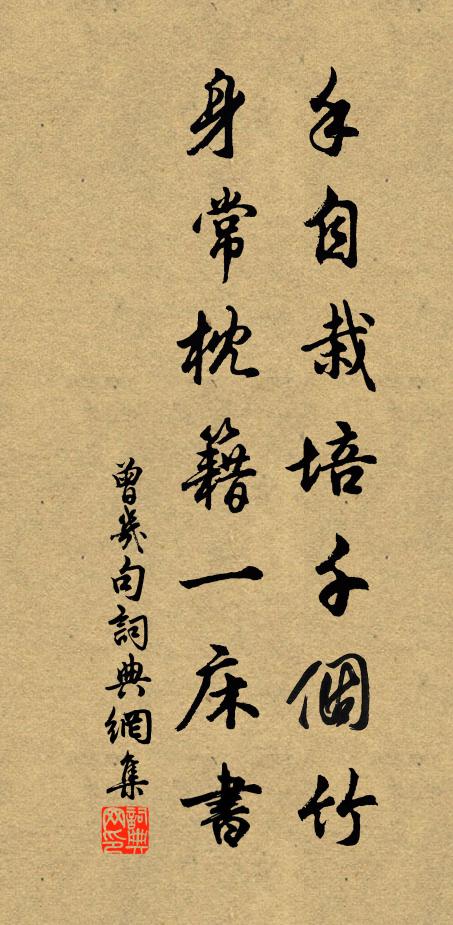 手自栽培千個竹
身常枕籍一床書
曾幾句詞典網集
詞典網印